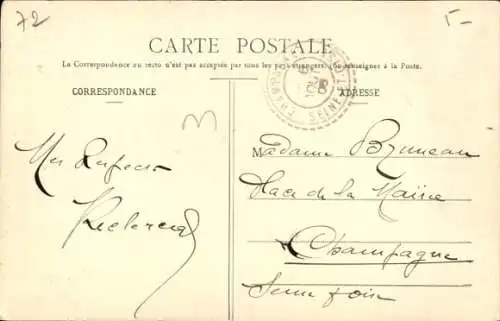 72
5-
CARTE POSTALE
La Correspondance au recto n'est pas acceptée par tous les pays étrangers. (Se renseigner à la Poste.
CORRESPONDANCE
ADRESSE
M
Mes Respects
Madame Bruneau
Place de la Mairie
Champagne
Seine & Oise